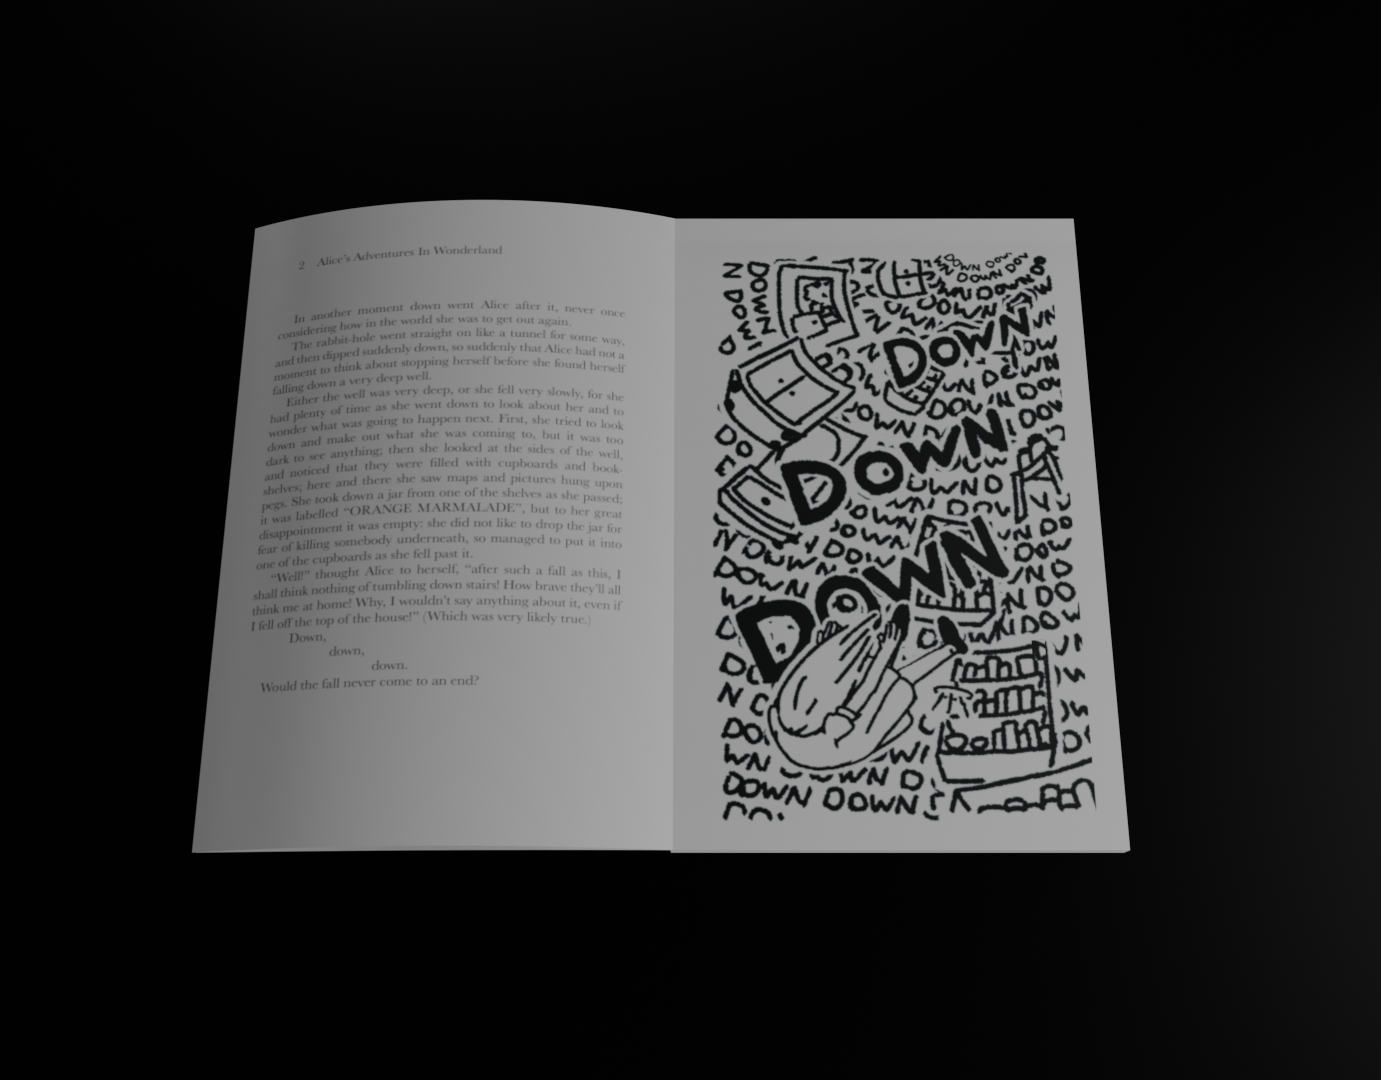 2 Alice's Adventures In Wonderland
In another moment down went Alice after it, never once
considering how in the world she was to get out again.
The rabbit-hole went straight on like a tunnel for some way,
and then dipped suddenly down, so suddenly that Alice had not a
moment to think about stopping herself before she found herself
falling down a very deep well.
Either the well was very deep, or she fell very slowly, for she
had plenty of time as she went down to look about her and to
wonder what was going to happen next. First, she tried to look
down and make out what she was coming to, but it was too
dark to see anything; then she looked at the sides of the well,
and noticed that they were filled with cupboards and book-
shelves; here and there she saw maps and pictures hung upon
pegs. She took down a jar from one of the shelves as she passed;
it was labelled “ORANGE MARMALADE”, but to her great
disappointment it was empty: she did not like to drop the jar for
fear of killing somebody underneath, so managed to put it into
one of the cupboards as she fell past it.
“Well!” thought Alice to herself, “after such a fall as this, I
shall think nothing of tumbling down stairs! How brave they'll all
think me at home! Why, I wouldn't say anything about it, even if
I fell off the top of the house!” (Which was very likely true.)
Down,
down,
down.
Would the fall never come to an end?
DOWN
DOWN
DOWN
DOWN
DOWN
DOWN DOWN